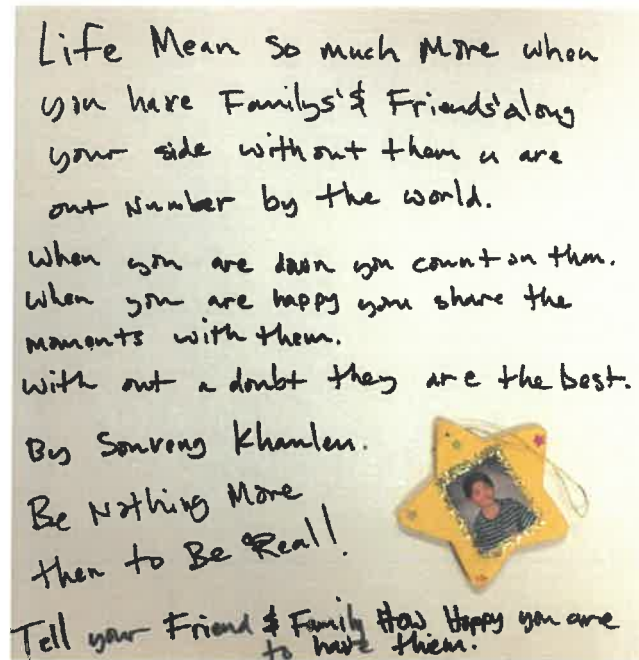 Life Mean So much More when
you have Familys' & Friends' along
your side without them u are
out Number by the world.
When you are down you count on them.
When you are happy you share the
moments with them.
With out a doubt they are the best.
By Khamlen.
Be Nothing More
then to Be Real!
Tell your Friend & Family How Happy you are
to have them.